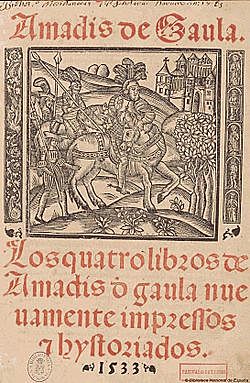 Amadis de Gaula.
Los quatro libros de
Amadis d gaula nue
uamente impressos
⁊ hystoriados.
1533
© Biblioteca Nacional de España